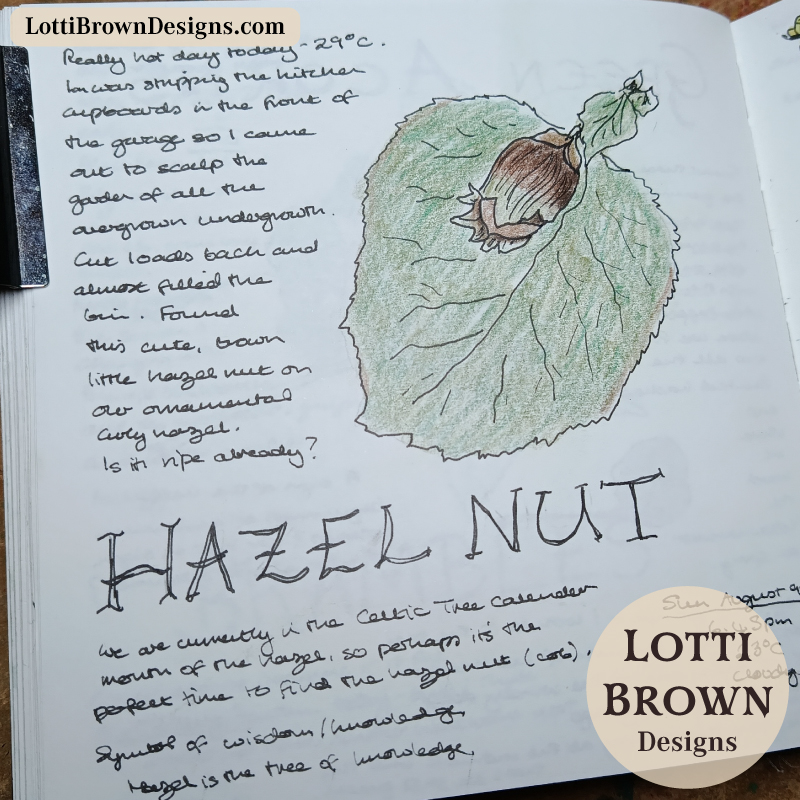 LottiBrownDesigns.com
Really hot day today - 29°C.
was stripping the kitchen
cupboards in the front of
the garage so I came
out to scalp the
garden of all the
overgrown undergrowth.
Cut loads back and
almost filled the
bin. Found
this cute, brown
little hazel nut on
our ornamental
curly hazel.
Is it ripe already?
HAZEL NUT
We are currently in the Celtic Tree Calendar
month of the hazel, so perhaps it's the
perfect time to find the hazel nut (cob).
Symbol of wisdom/knowledge,
Hazel is the tree of knowledge.
Sun August 9
5pm
23°C
cloudy
LOTTI
BROWN
Designs